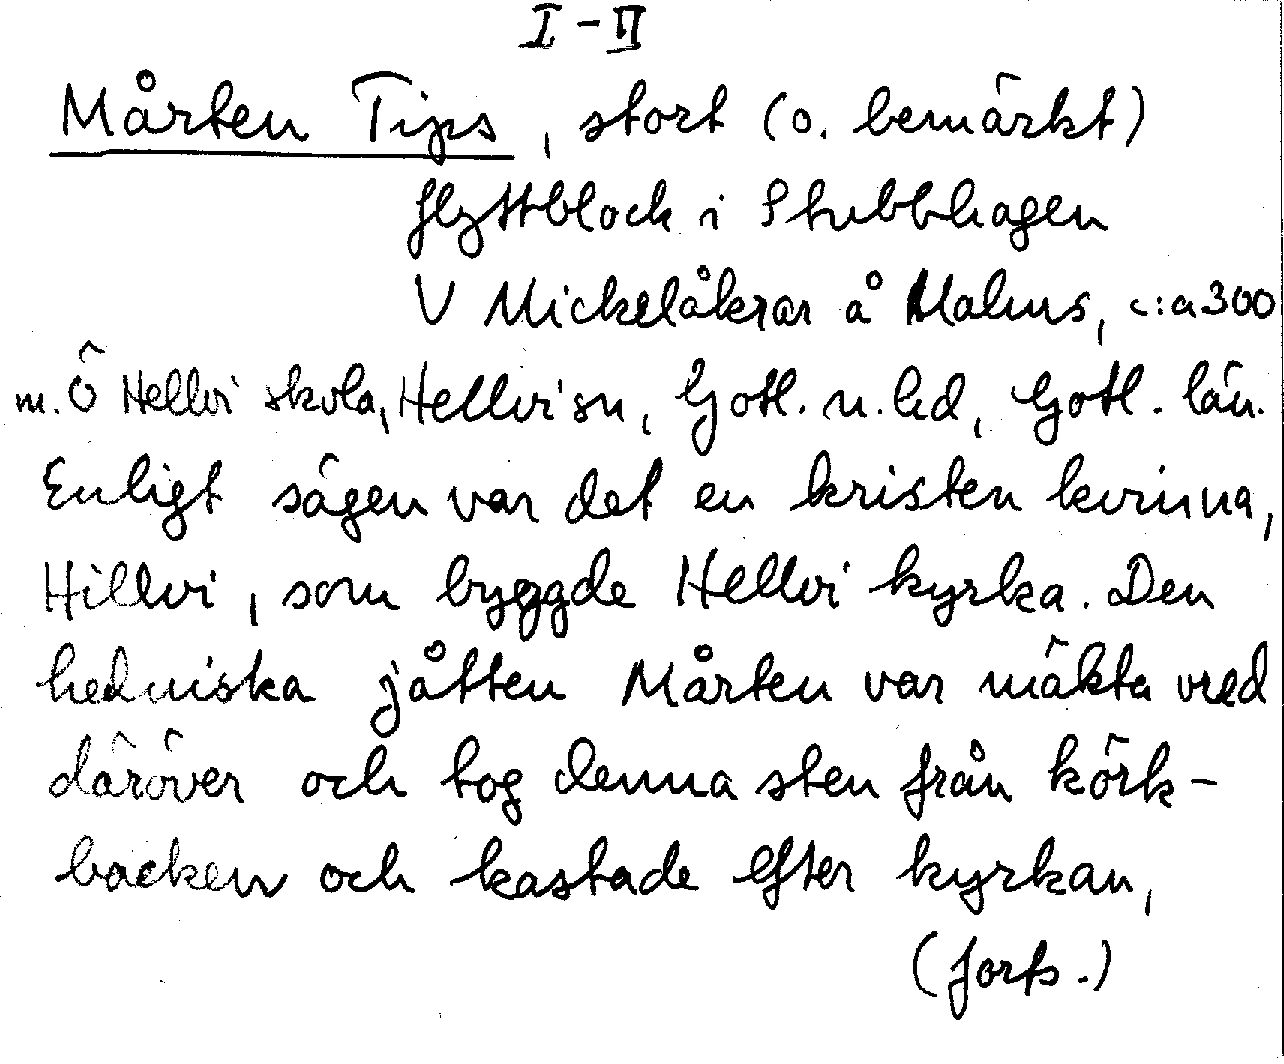 I - II
Mårten Tips, stort (o. bemärkt)
flyttblock i Stubbhagen
V Mickelåkrar å Malms, c:a 300
m. Ö Hellvi skola, Hellvi sn, Gotl. n. hd, Gotl. län.
Enligt sägen var det en kristen kvinna,
Hillvi, som byggde Hellvi kyrka. Den
hedniska jåtten Mårten var mäkta vred
däröver och tog denna sten från körk-
backen och kastade efter kyrkan,
(forts.)